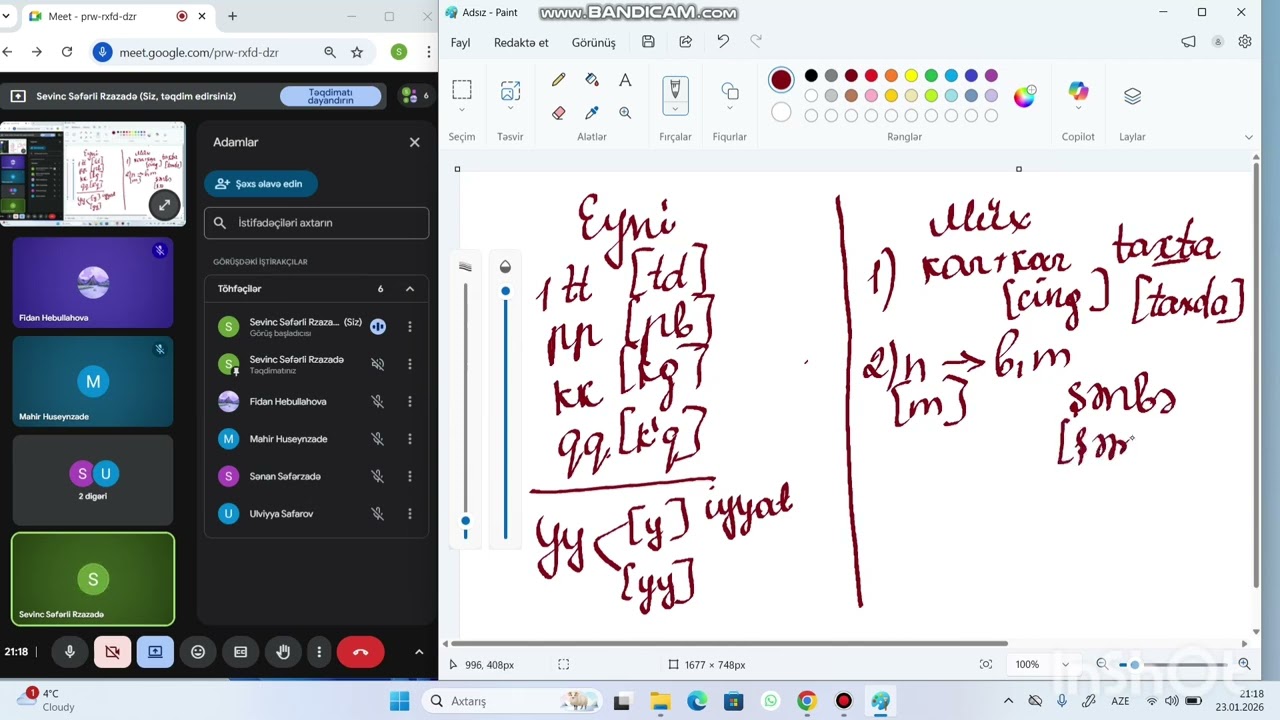 Meet - prw-rxfd-dzr
meet.google.com/prw-rxfd-dzr
S
Sevinc Səfərli Rzazadə (Siz, təqdim edirsiniz)
Təqdimatı dayandırın
6
Adamlar
Şəxs əlavə edin
İstifadəçiləri axtarın
GÖRÜŞDƏKİ İŞTİRAKÇILAR
Töhfəçilər
6
S
Sevinc Səfərli Rzaza... (Siz)
Görüş başladıcısı
S
Sevinc Səfərli Rzazadə
Təqdimatınız
Fidan Hebullahova
M
Mahir Huseynzade
S
Sənan Səfərzadə
U
Ulviyya Safarov
Fidan Hebullahova
M
Mahir Huseynzade
S
U
2 digəri
S
Sevinc Səfərli Rzazadə
21:18
Adsız - Paint
www.BANDICAM.com
Fayl
Redaktə et
Görünüş
Seçim
Təsvir
Alətlər
Fırçalar
Fiqurlar
Rənglər
Copilot
Laylar
Eyni
1 tt [td]
pp [pb]
kk [kg]
qq. [k'q]
yy [y] iyyat
[yy]
Müx
1) kar+kar taxta
[cing] [taxda]
2) n → b, m
[m]
şənbə
[şəm
996, 408px
1677 × 748px
100%
1
4°C
Cloudy
Axtarış
AZE
21:18
23.01.2026
InShOt